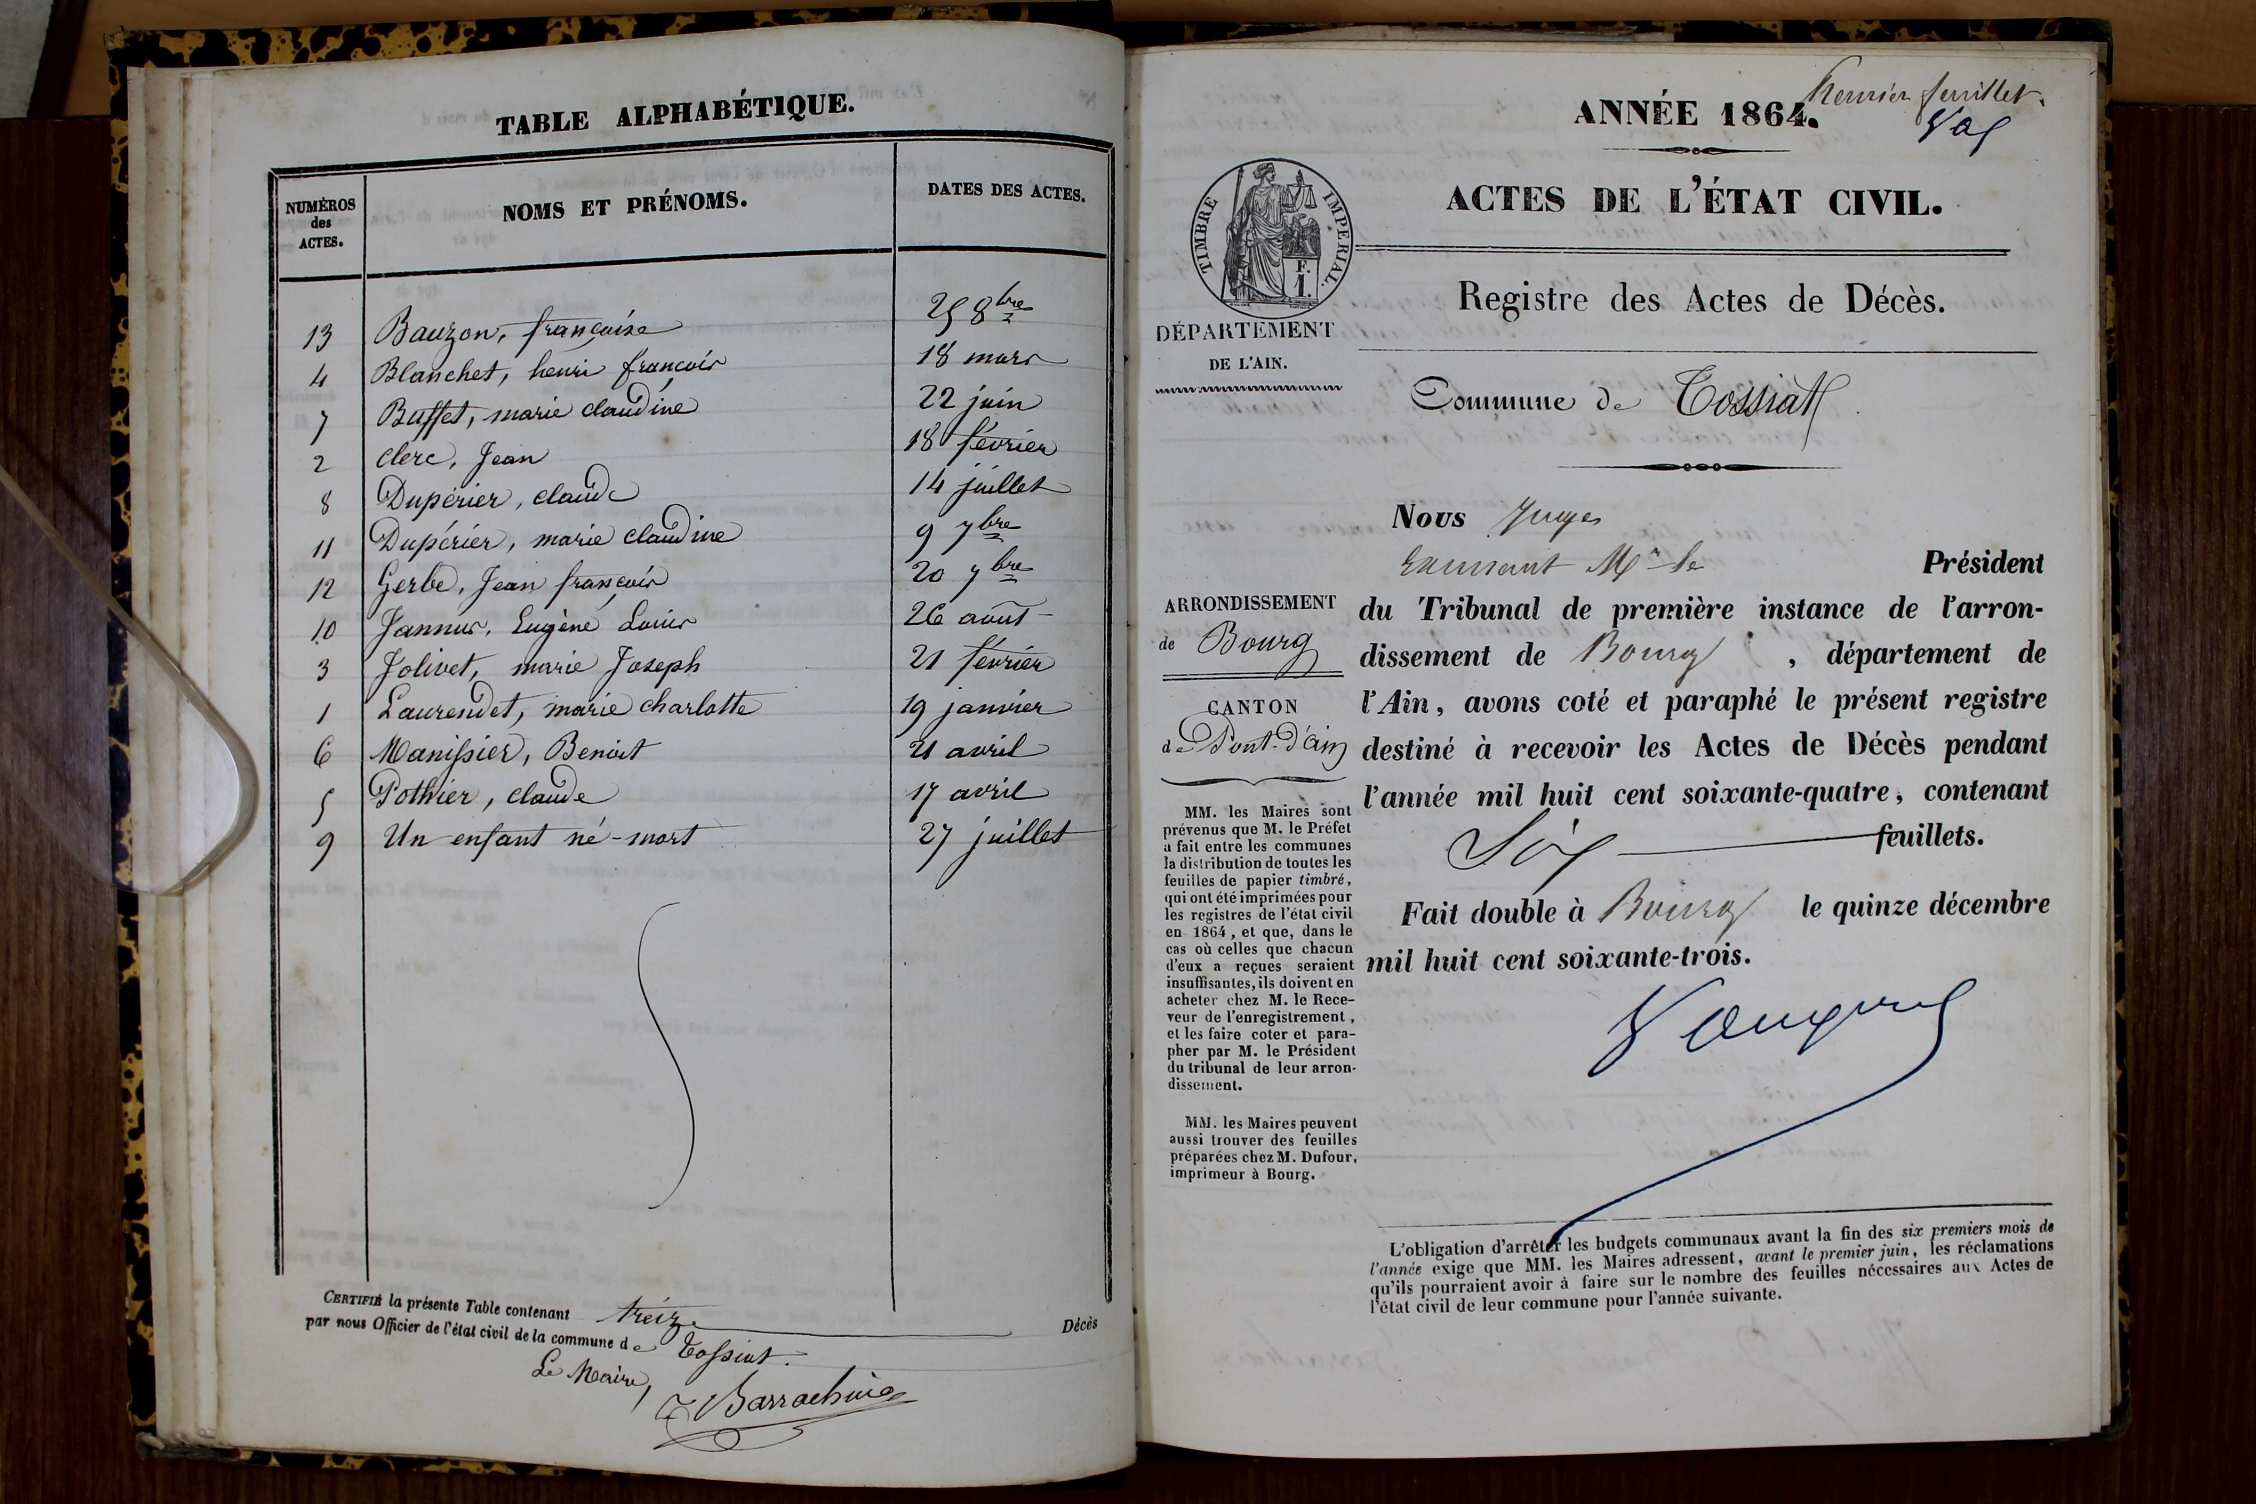 TABLE ALPHABÉTIQUE.
NUMÉROS des ACTES. NOMS ET PRÉNOMS. DATES DES ACTES.
13 Bauzon, françoise 25 8bre
4 Blanchet, henri françois 18 mars
7 Buffet, marie claudine 22 juin
2 clerc, Jean 18 février
8 Dupérier, claude 14 juillet
11 Dupérier, marie claudine 9 7bre
12 Gerbe, Jean françois 20 7bre
10 Jannus, Eugène Louis 26 août
3 Jolivet, marie Joseph 21 février
1 Laurendet, marie charlotte 19 janvier
6 Manissier, Benoit 21 avril
5 Pothier, claude 17 avril
9 Un enfant né-mort 27 juillet
CERTIFIÉ la présente Table contenant treize Décès
par nous Officier de l'état civil de la commune de Tossiat.
Le Maire,
Barrachin
ANNÉE 1864.
feuillet.
ACTES DE L'ÉTAT CIVIL.
TIMBRE IMPERIAL.
F.
1.
Registre des Actes de Décès.
DÉPARTEMENT
DE L'AIN.
Commune de Tossiat
Nous Juge
Mr le Président
du Tribunal de première instance de l'arron-
dissement de Bourg, département de
l'Ain, avons coté et paraphé le présent registre
destiné à recevoir les Actes de Décès pendant
l'année mil huit cent soixante-quatre, contenant
Six feuillets.
Fait double à Bourg le quinze décembre
mil huit cent soixante-trois.
ARRONDISSEMENT
de Bourg
CANTON
de Pont-d'ain
MM. les Maires sont
prévenus que M. le Préfet
a fait entre les communes
la distribution de toutes les
feuilles de papier timbré,
qui ont été imprimées pour
les registres de l'état civil
en 1864, et que, dans le
cas où celles que chacun
d'eux a reçues seraient
insuffisantes, ils doivent en
acheter chez M. le Rece-
veur de l'enregistrement,
et les faire coter et para-
pher par M. le Président
du tribunal de leur arron-
dissement.
MM. les Maires peuvent
aussi trouver des feuilles
préparées chez M. Dufour,
imprimeur à Bourg.
L'obligation d'arrêter les budgets communaux avant la fin des six premiers mois de
l'année exige que MM. les Maires adressent, avant le premier juin, les réclamations
qu'ils pourraient avoir à faire sur le nombre des feuilles nécessaires aux Actes de
l'état civil de leur commune pour l'année suivante.